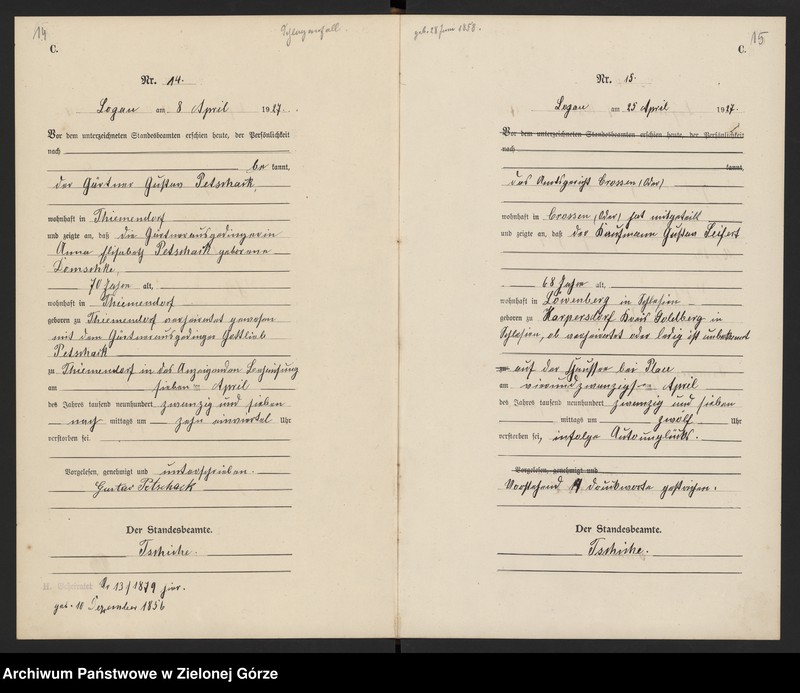 14
Schlaganfall.
C.
Nr. 14.
Logau am 8 April 1927.
Vor dem unterzeichneten Standesbeamten erschien heute, der Persönlichkeit
nach
be kannt,
der Gärtner Gustav Petschack,
wohnhaft in Thiemendorf
und zeigte an, daß die Gärtnerausgedingerin
Anna Elisabeth Petschack geborene
70 Jahre alt,
wohnhaft in Thiemendorf
geboren zu Thiemendorf verheiratet gewesen
mit dem Gärtnerausgedinger Gottlieb
Petschack
zu Thiemendorf in des Anzeigenden Behausung
am sieben April
des Jahres tausend neunhundert zwanzig und sieben
nach mittags um zehn einviertel Uhr
verstorben sei.
Vorgelesen, genehmigt und unterschrieben.
Gustav Petschack
Der Standesbeamte.
Tschirke.
H. Nr 13/1879
geb. 10 Dezember 1856
geb. 28 Juni 1858.
15
C.
Nr. 15.
Logau am 25 April 1927.
Vor dem unterzeichneten Standesbeamten erschien heute, der Persönlichkeit
nach
kannt,
das Amtsgericht Crossen (Oder)
wohnhaft in Crossen (Oder) hat mitgeteilt
und zeigte an, daß der Kaufmann Gustav Seifert
68 Jahre alt,
wohnhaft in Löwenberg in Schlesien
geboren zu Harpersdorf Kreis Goldberg in
Schlesien, ob verheiratet oder ledig ist unbekannt
auf der Chaussee bei Plau
am vierundzwanzigsten April
des Jahres tausend neunhundert zwanzig und sieben
mittags um zwölf Uhr
verstorben sei, infolge Autounglücks.
Vorgelesen, genehmigt und
Vorstehend Druckworte gestrichen.
Der Standesbeamte.
Tschirke.
Archiwum Państwowe w Zielonej Górze